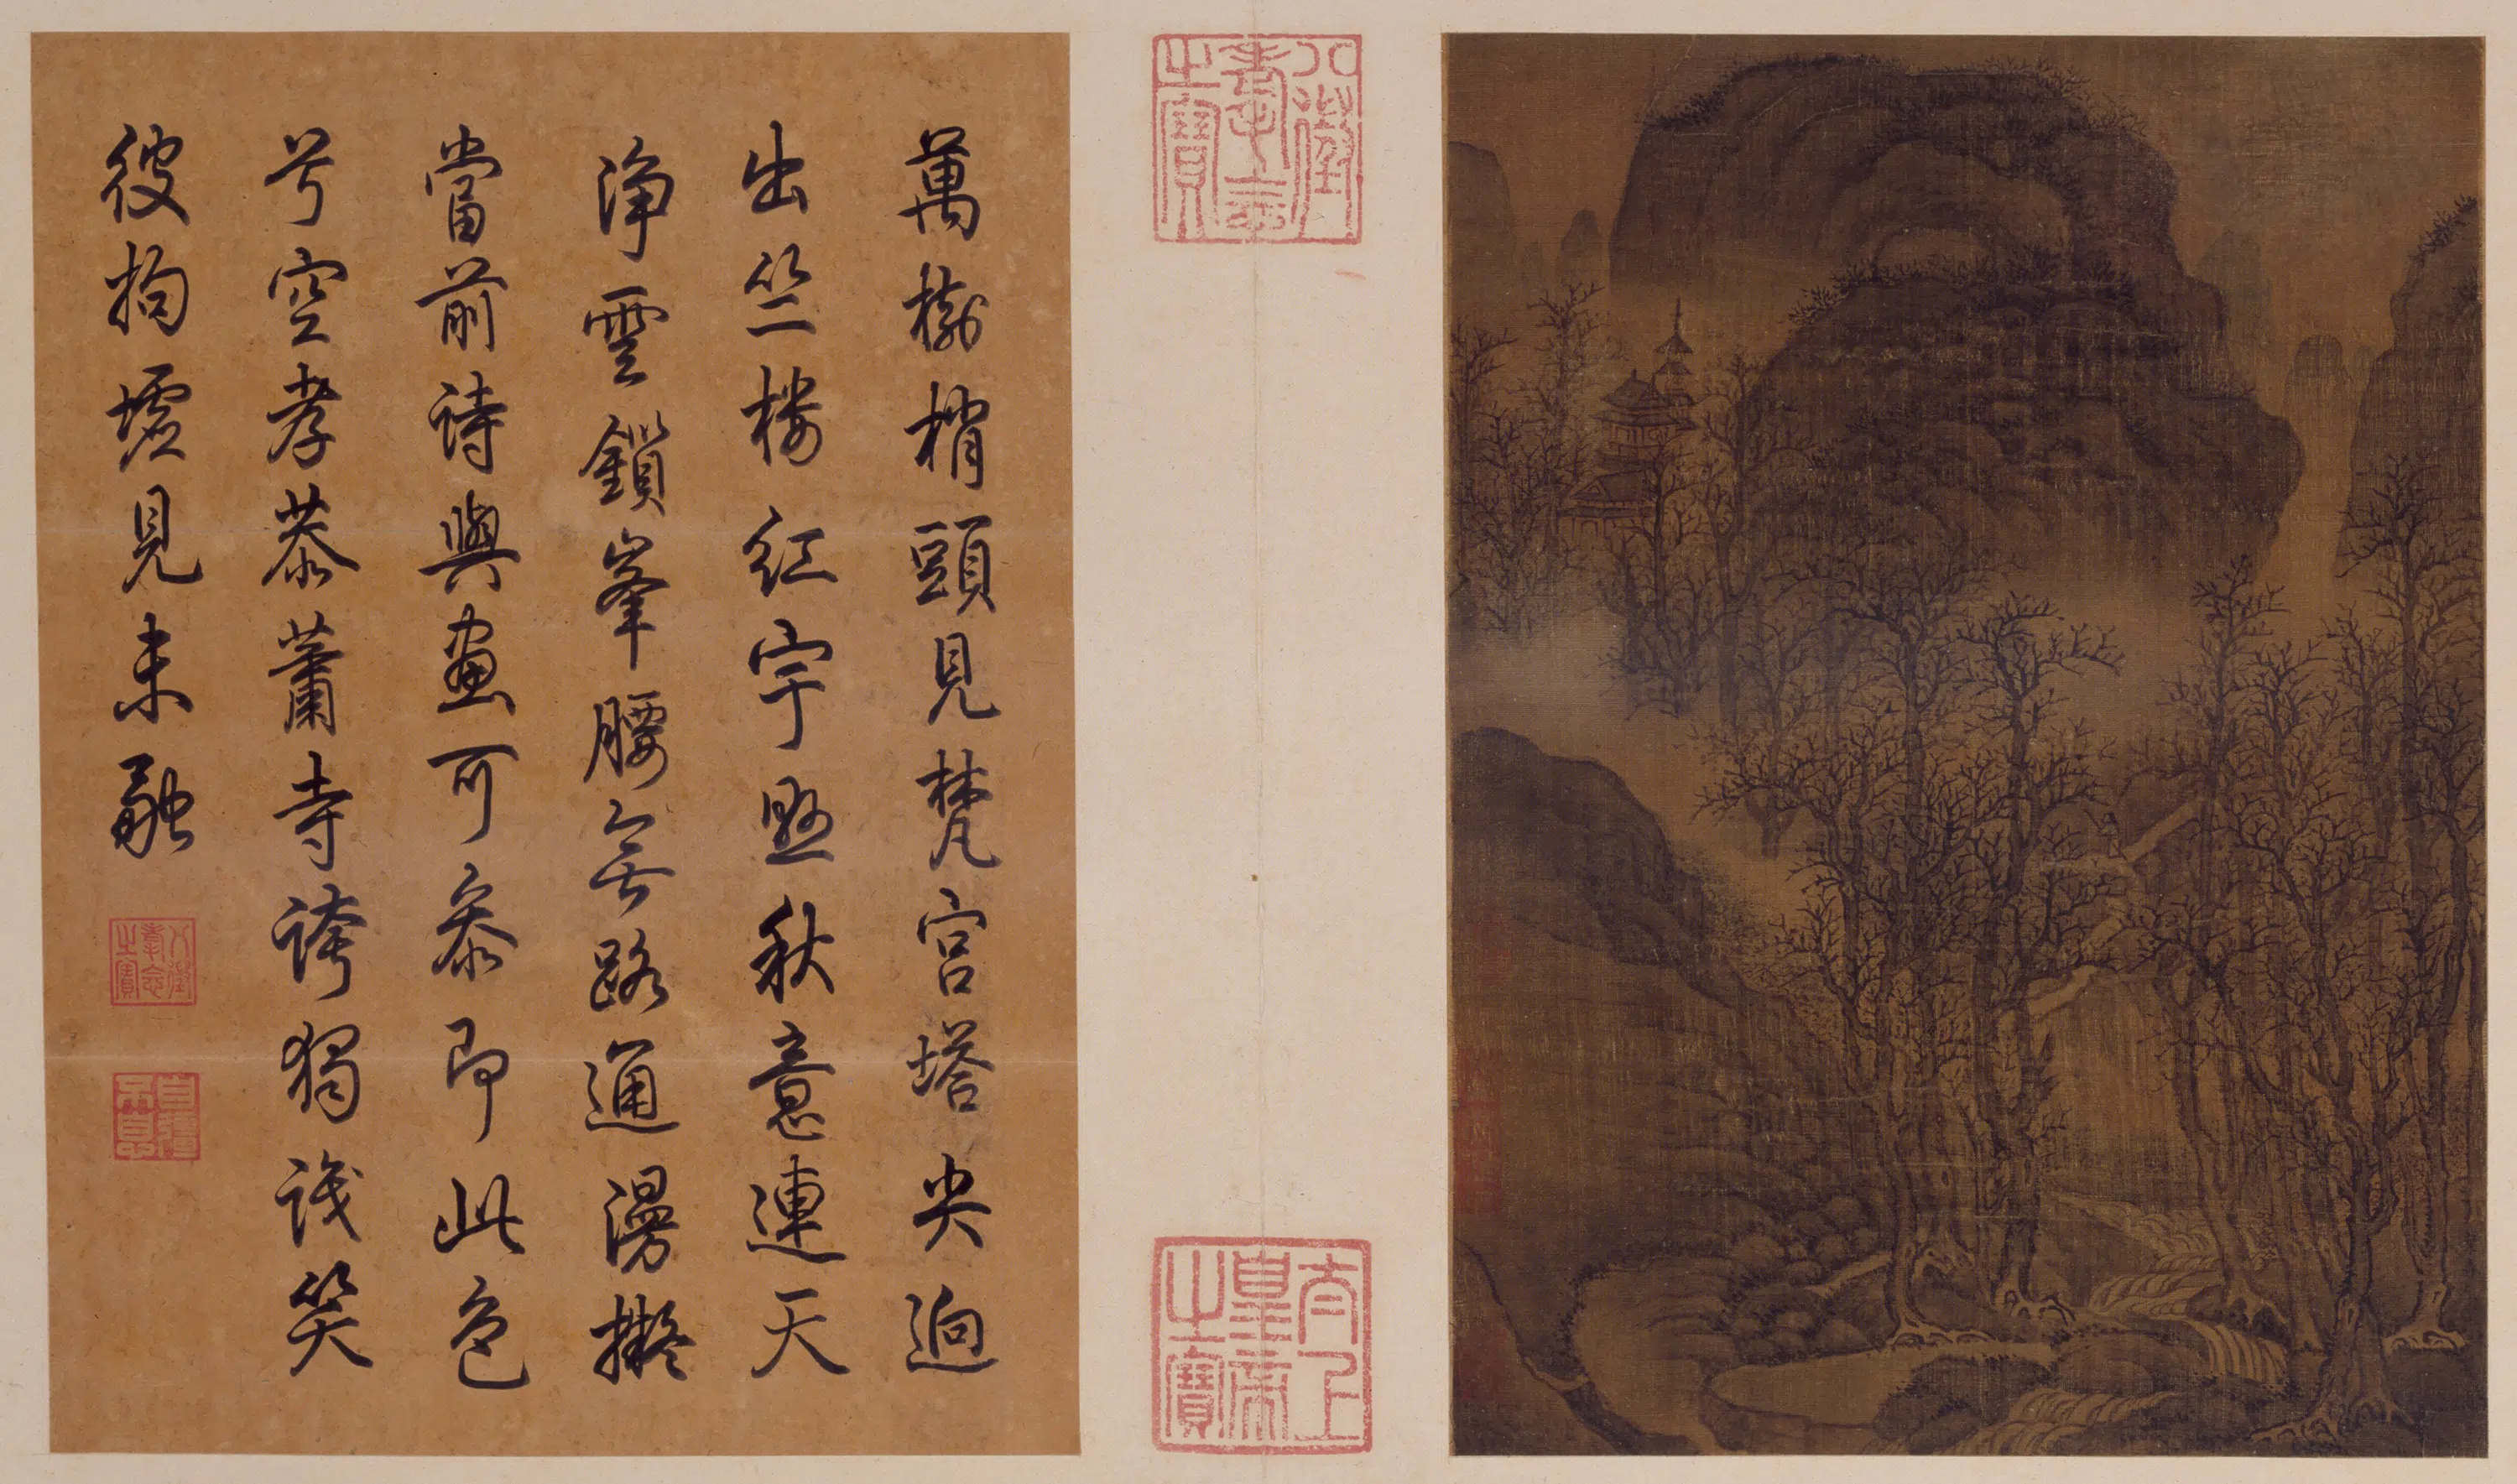 八徵耄念之寶
太上皇帝之寶
萬樹梢頭見梵宮塔尖迥
出竺樓紅宇懸秋意連天
淨雲鎖峯腰無路通漫擬
當前詩與畫可參即此色
兮空孝恭蕭寺誇獨識笑
彼拘墟見未融
八徵耄念之寶
自彊不息